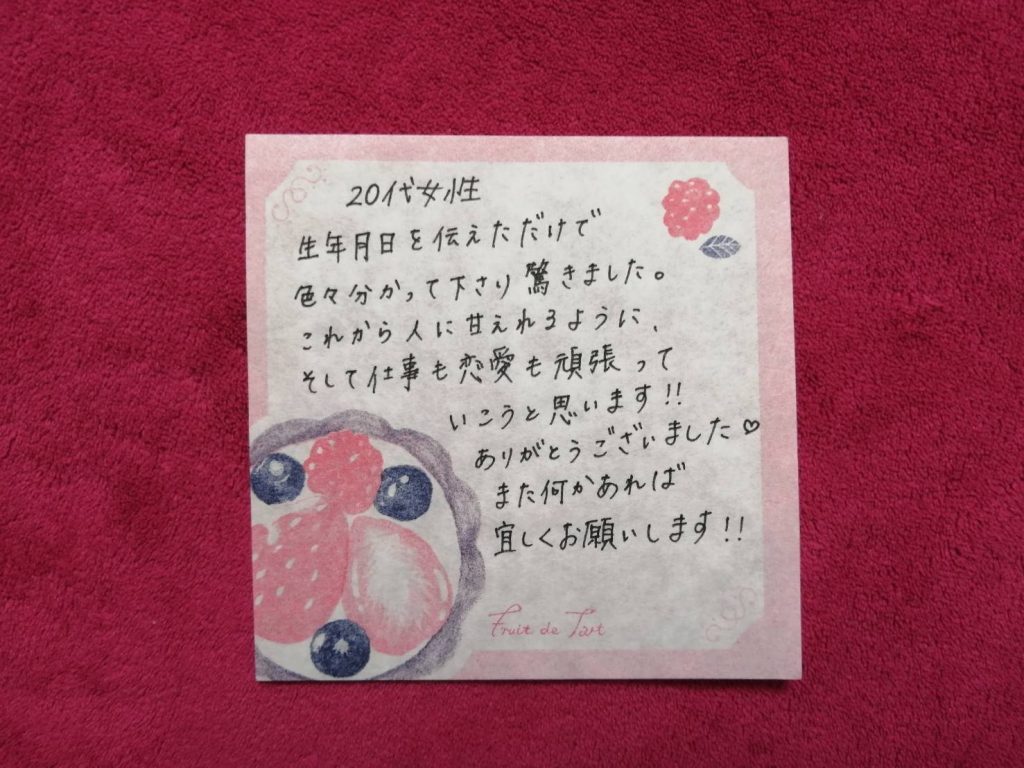 20代女性
生年月日を伝えただけで
色々分かって下さり驚きました。
これから人に甘えれるように、
そして仕事も恋愛も頑張って
いこうと思います!!
ありがとうございました♡
また何かあれば
宜しくお願いします!!
Fruit de Tart